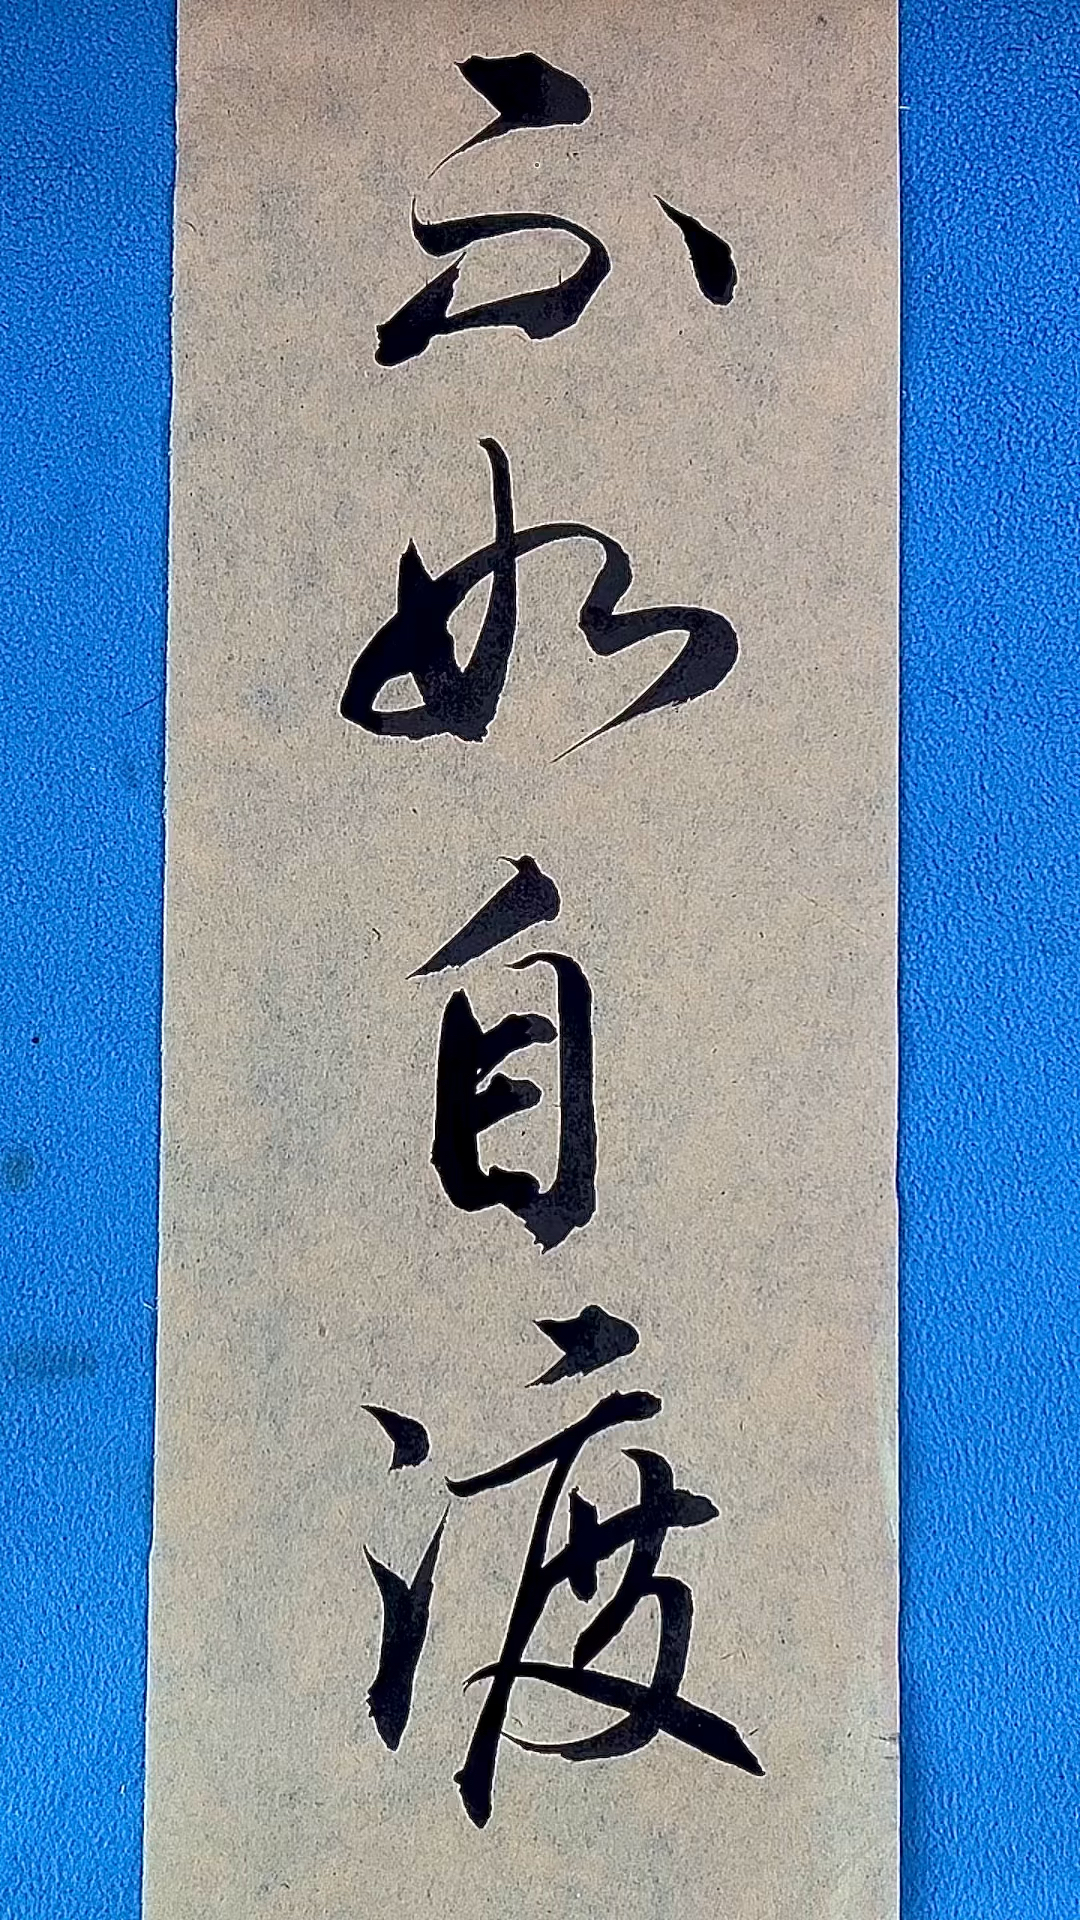 不如自渡